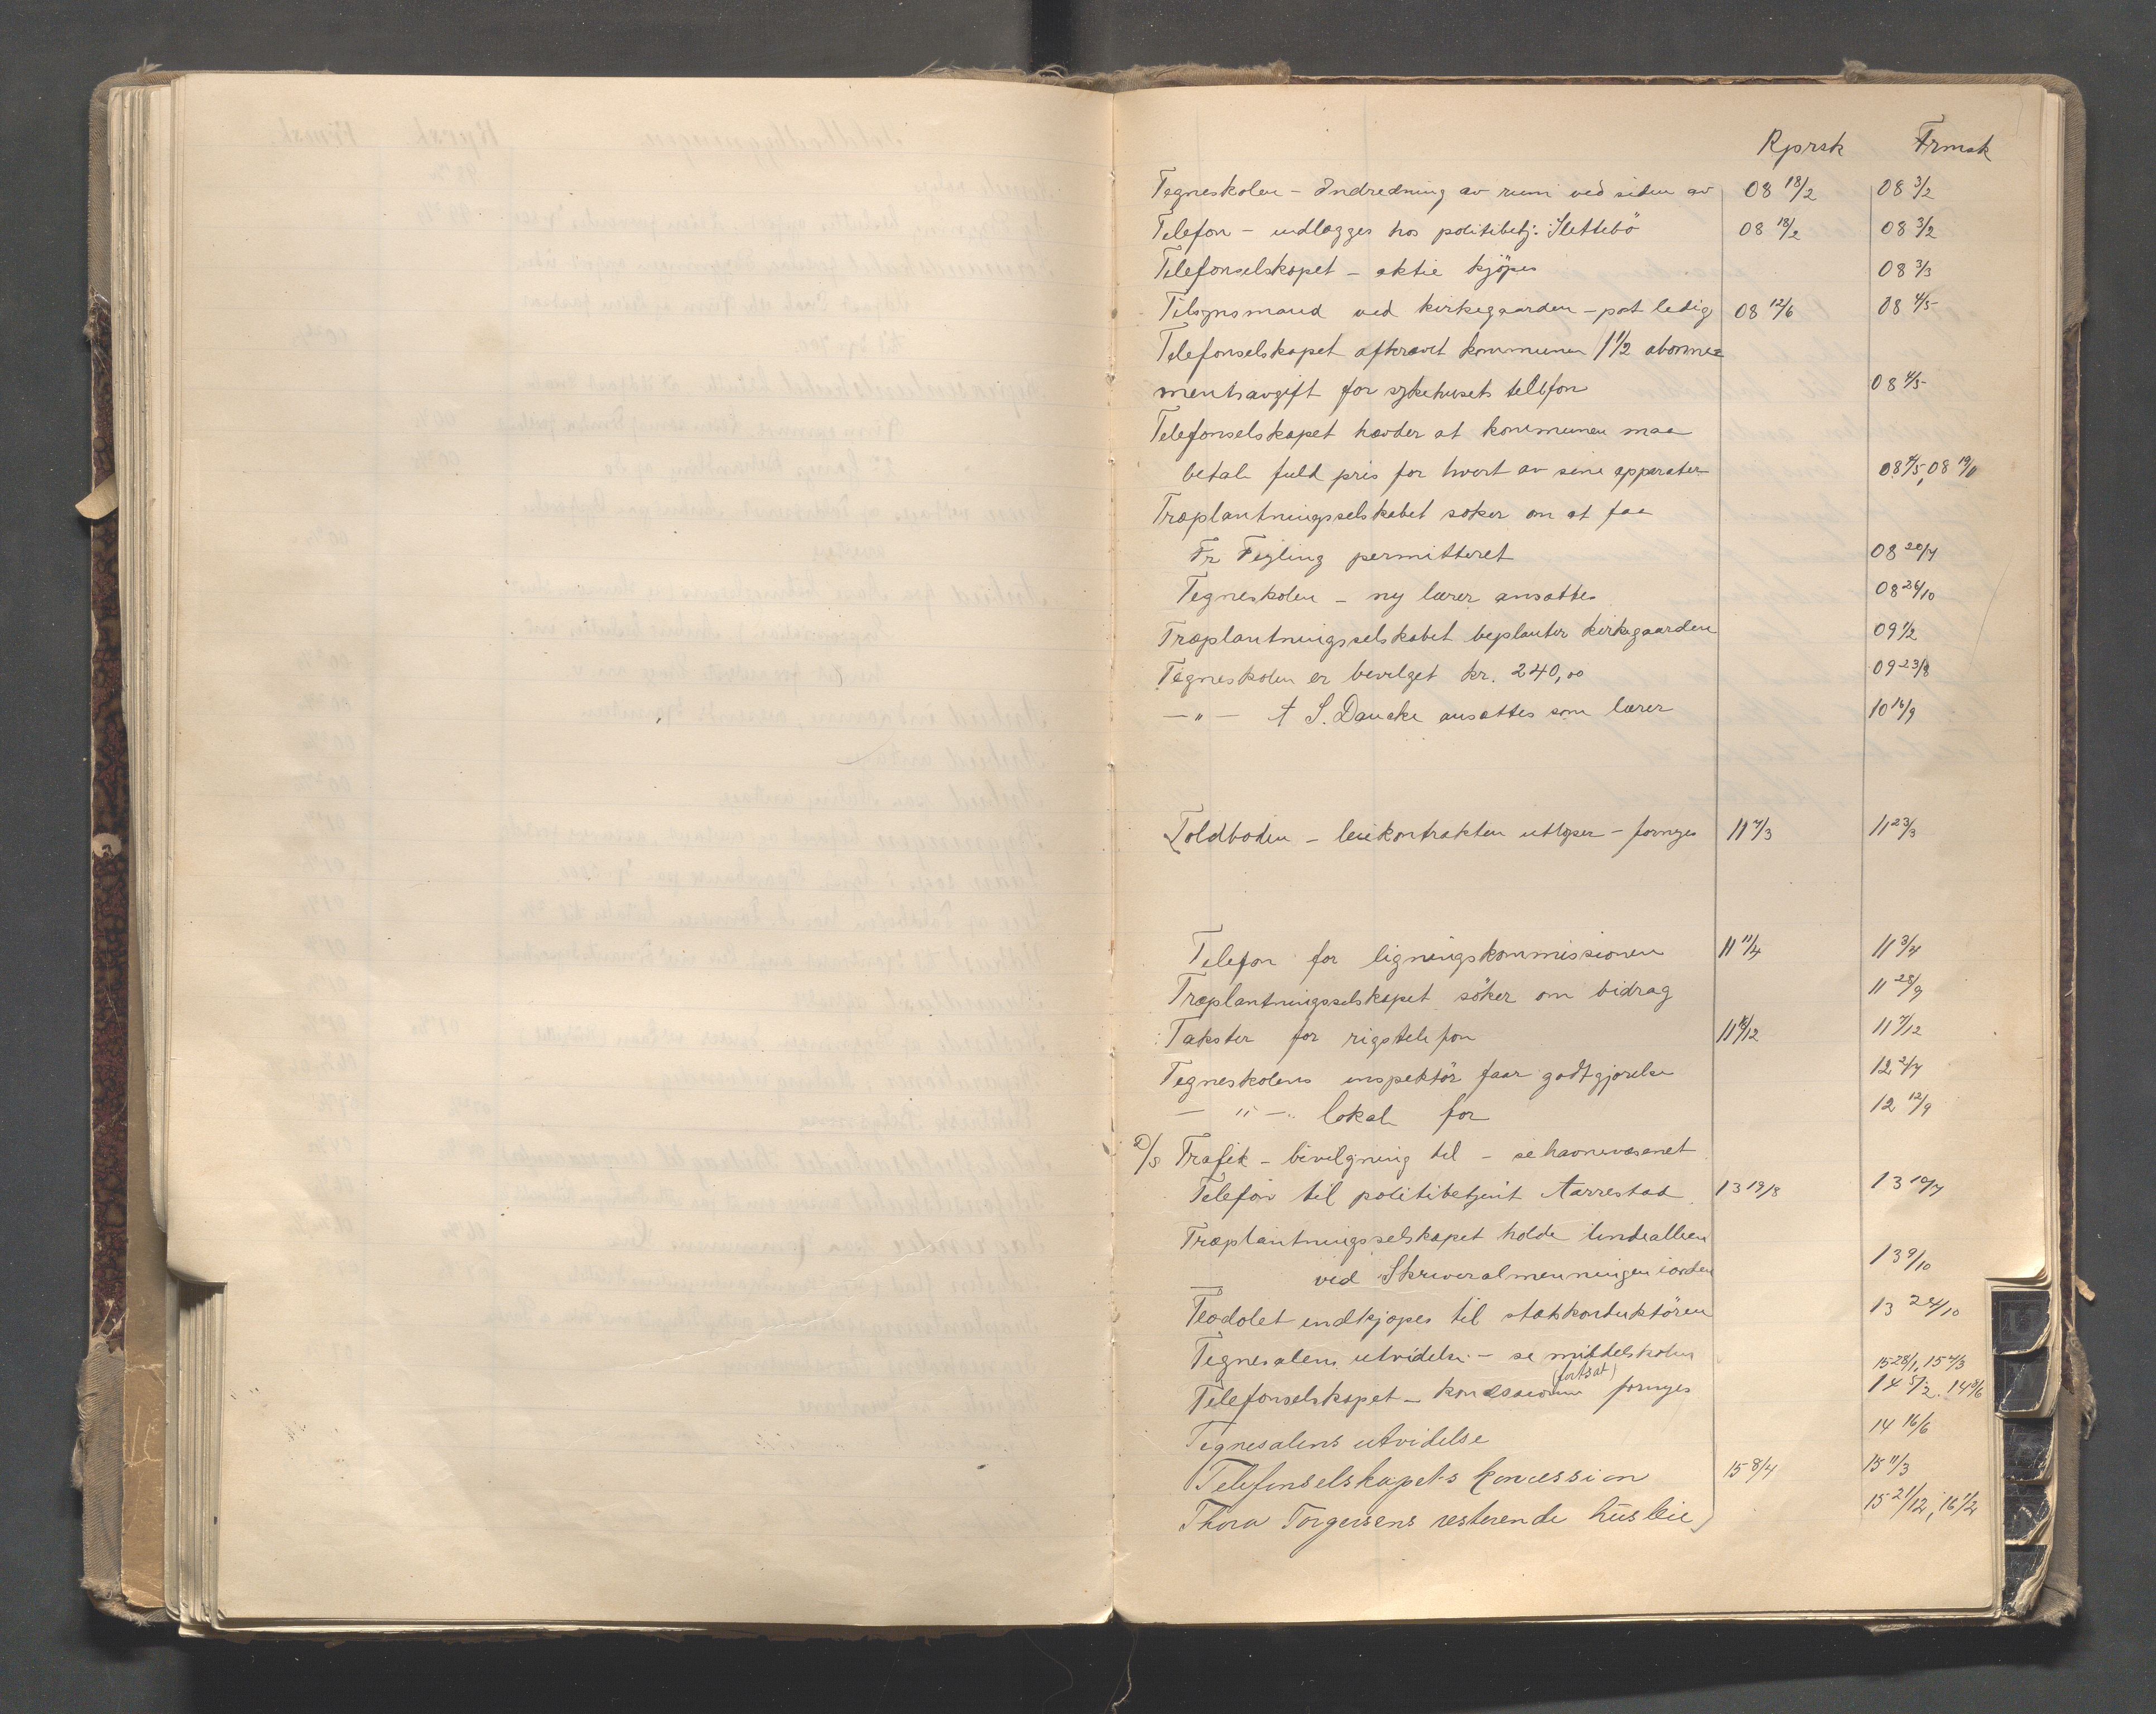 Rprsk Frmsk
Tegneskolen - Indredning av rum ved siden av 08 18/2 08 3/2
Telefon - indlægges hos politibetj. Slettebö 08 18/2 08 3/2
Telefonselskapet - aktie kjöpes 08 3/3
Tilsynsmand ved kirkegaarden - post ledig 08 12/6 08 4/5
Telefonselskapet afkrævet kommunen 1 1/2 abonne=
mentsavgift for sykehusets telefon 08 4/5
Telefonselskapet hævder at kommunen maa
betale fuld pris for hvert av sine apparater 08 4/5, 08 19/11
Træplantningsselskabet söker om at faa
Fr Feyling permitteret 08 20/7
Tegneskolen - ny lærer ansættes 08 26/10
Træplantningsselskabet beplanter kirkegaarden 09 1/2
Tegneskolen er bevilget kr. 240,00 09 23/8
- " - A S. Dancke ansættes som lærer 10 16/9
Toldboden - leiekontrakten utløper - fornyes 11 7/3 11 23/3
Telefon for ligningskommissionen 11 11/4 11 3/4
Træplantningsselskapet söker om bidrag 11 28/9
Takster for rigstelefon 11 /12 11 7/12
Tegneskolens inspektör faar godtgjørelse 12 2/7
- " - lokale for 12 12/9
D/S Trafik - bevilgning til - se havnevæsenet
Telefon til politibetjent Aarrestad 13 19/8 13 10/7
Træplantningsselskapet holde lindealleen
ved Skriveralmenningen iorden 13 9/10
Teodolet indkjøpes til stadskonduktören 13 24/10
Tegnesalens utvidelse - se middelskolen
(fortsat) 15 28/1, 15 4/3
Telefonselskapet - koncessionen fornyes 14 5/2. 14 8/6
Tegnesalens utvidelse 14 16/6
Telefonselskapets koncession 15 8/4 15 11/3
Thora Torgersens resterende husleie 15 21/12, 16 1/2